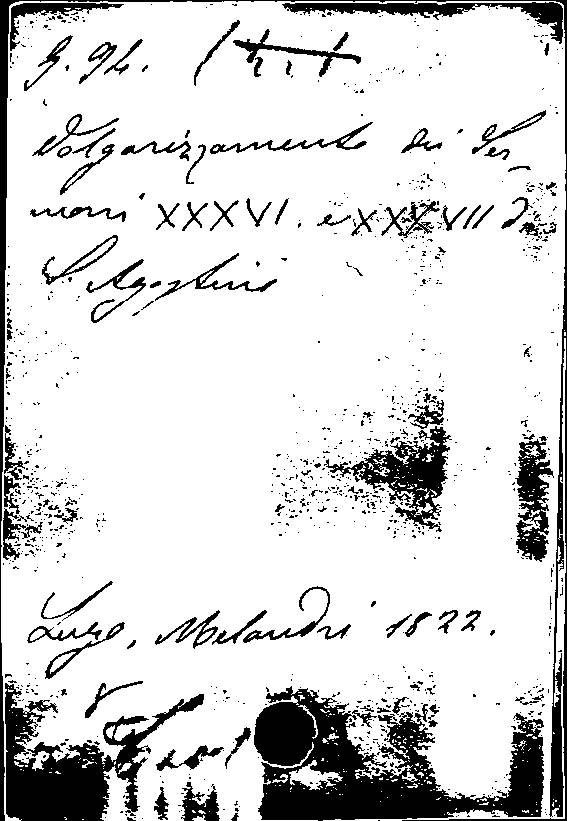 G. 94.
Volgarizzamento dei Ser-
moni XXXVI. e XXXVII di
S. Agostino
Lugo, Melandri 1822.
8